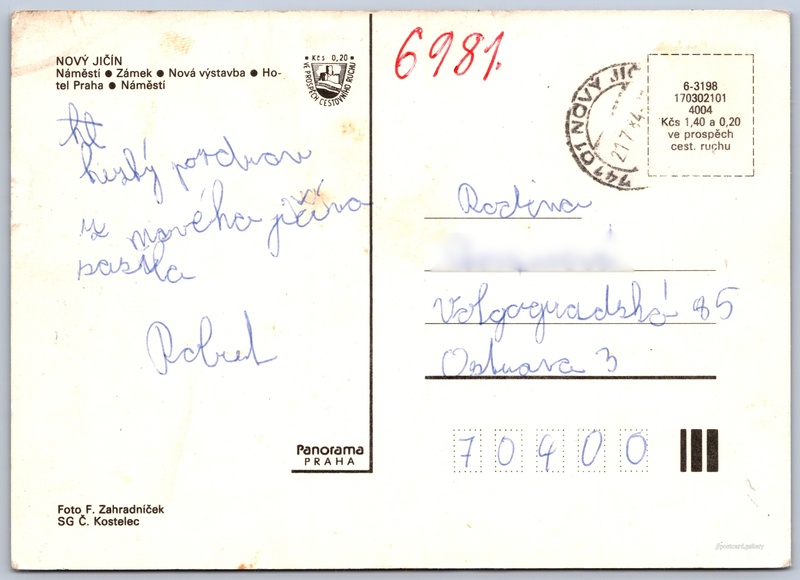 NOVÝ JIČÍN
Náměstí ● Zámek ● Nová výstavba ● Ho-
tel Praha ● Náměstí
Kčs 0,20
VE PROSPĚCH CESTOVNÍHO RUCHU
6981.
741 01 NOVÝ JIČ
21.7.84
6-3198
170302101
4004
Kčs 1,40 a 0,20
ve prospěch
cest. ruchu
hezký pozdrav
z nového jičína
posílá
Robert
Rodina
Volgogradská 85
Ostrava 3
70400
Panorama
PRAHA
Foto F. Zahradníček
SG Č. Kostelec